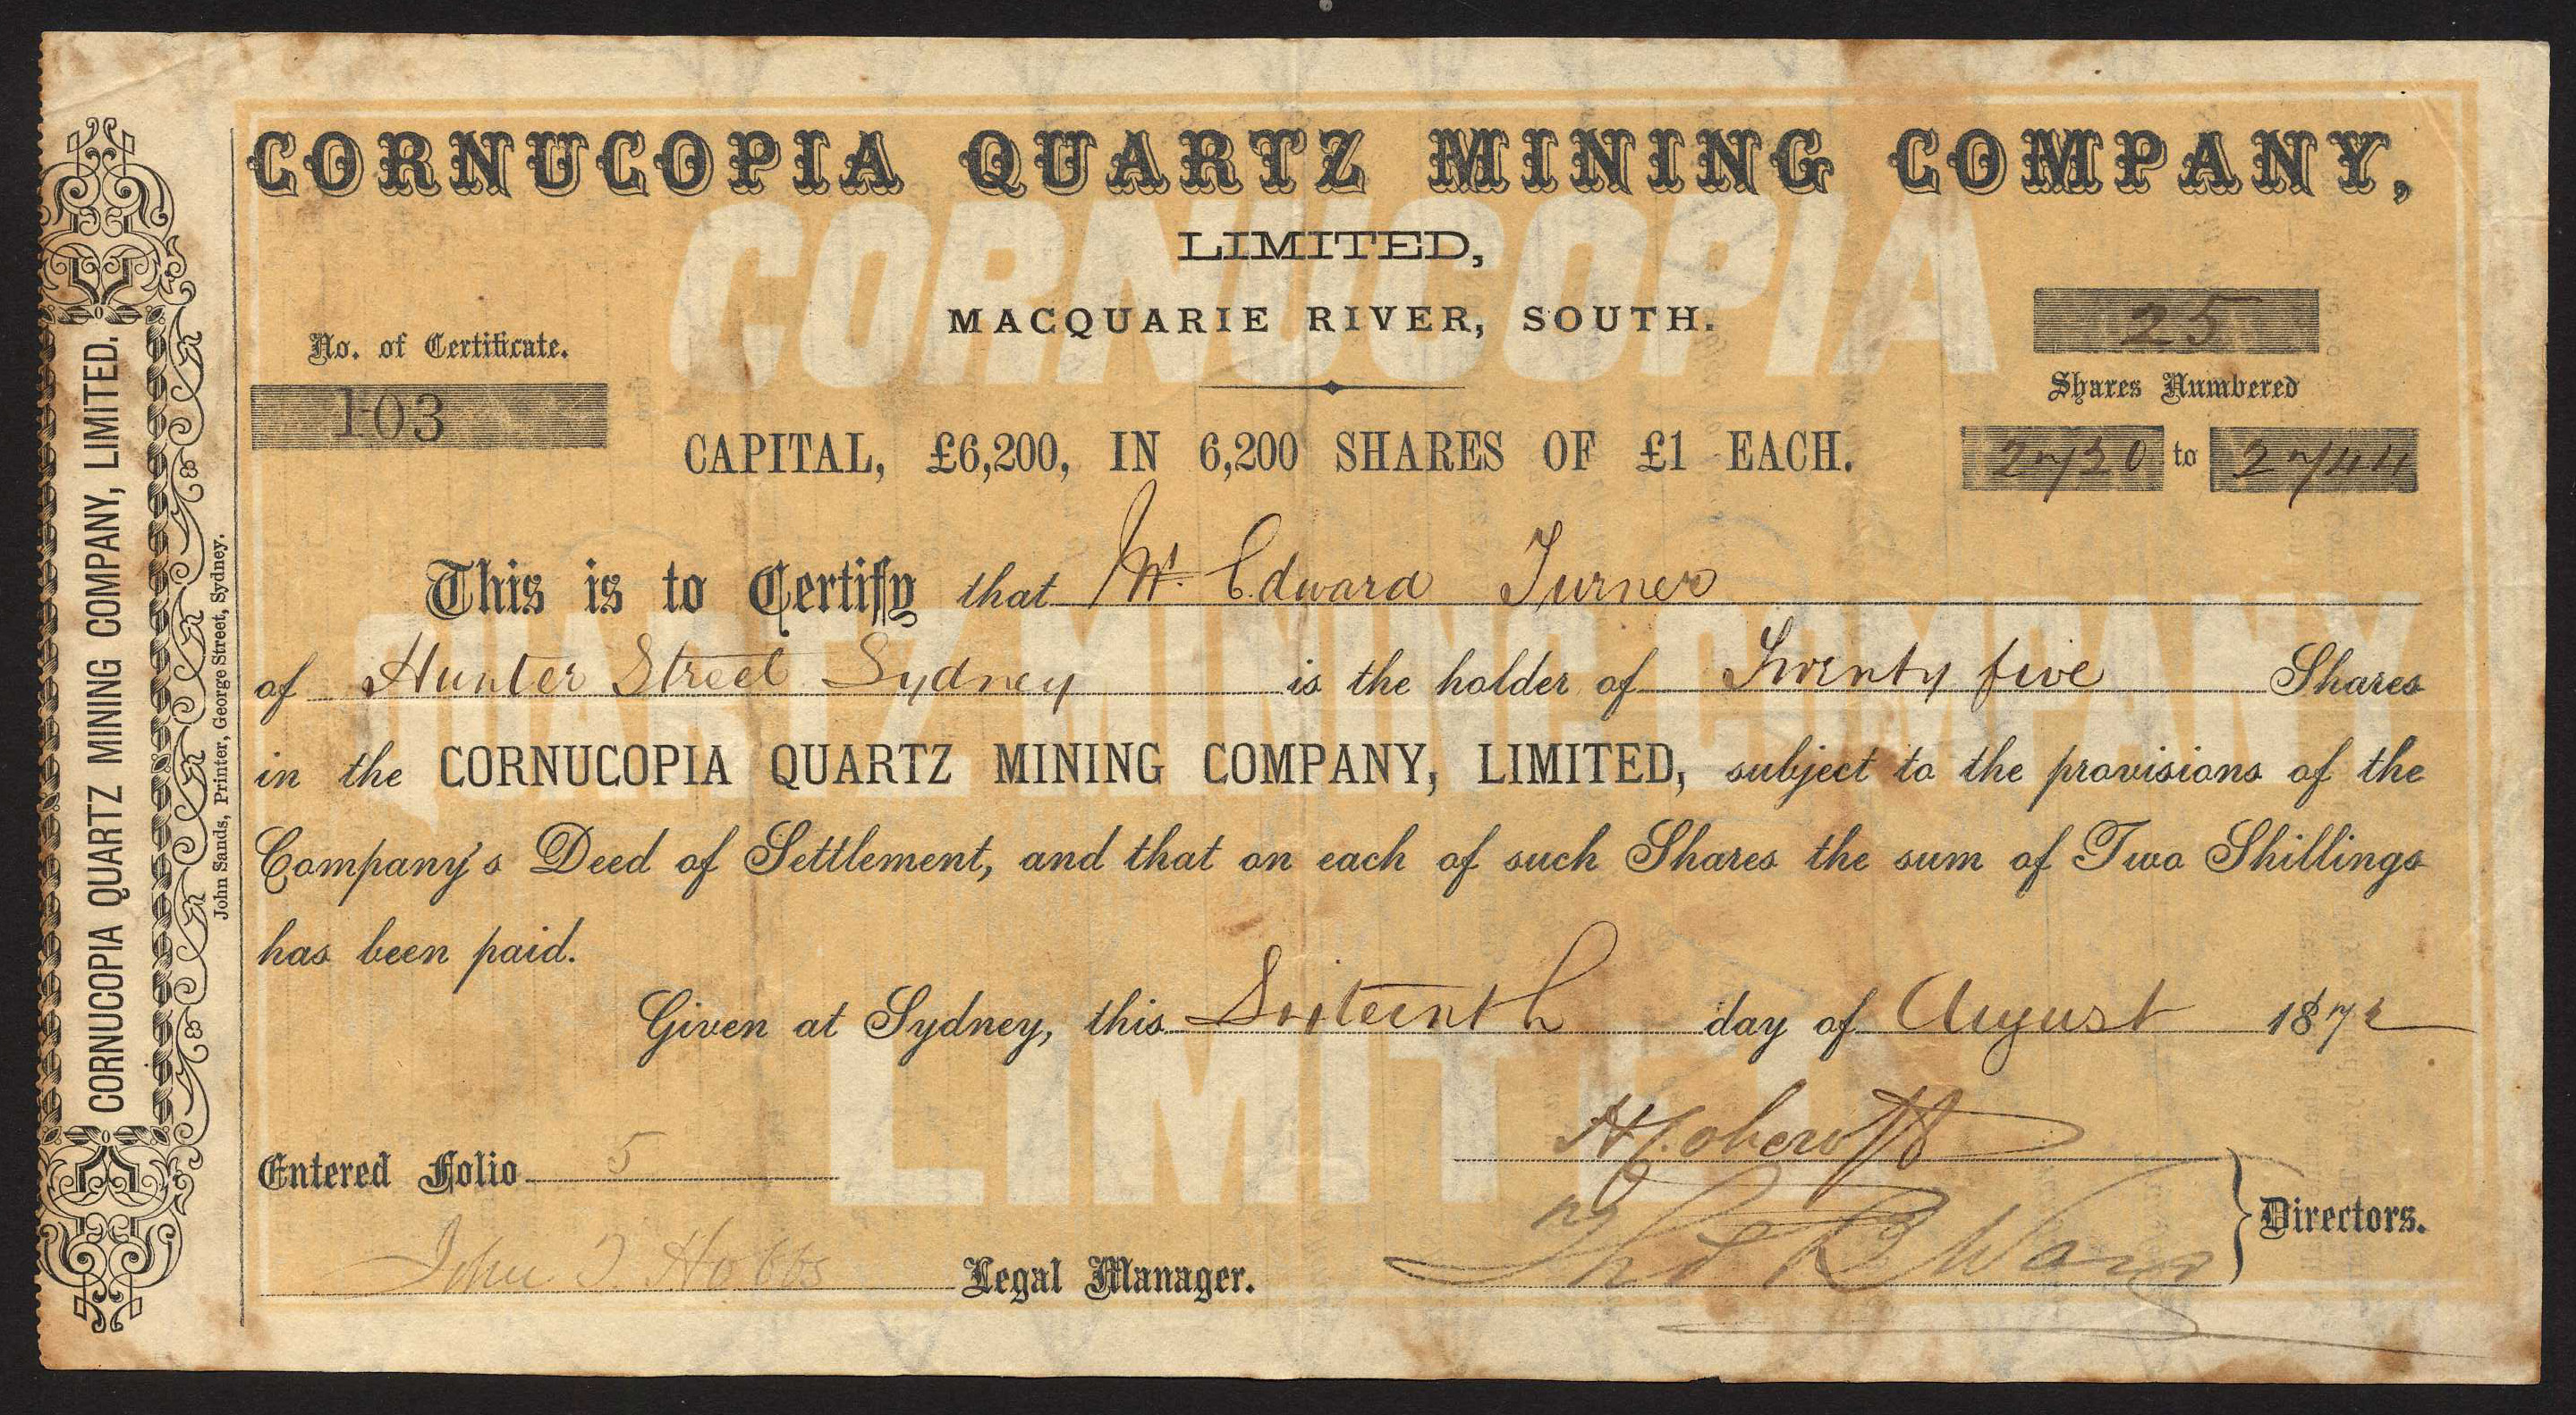 CORNUCOPIA QUARTZ MINING COMPANY,
LIMITED,
MACQUARIE RIVER, SOUTH.
No. of Certificate.
103
25
Shares Numbered
2720 to 2744
CAPITAL, £6,200, IN 6,200 SHARES OF £1 EACH.
This is to Certify that Mr. Edward Turner
of Hunter Street Sydney is the holder of Twenty five Shares
in the CORNUCOPIA QUARTZ MINING COMPANY, LIMITED, subject to the provisions of the
Company's Deed of Settlement, and that on each of such Shares the sum of Two Shillings
has been paid.
Given at Sydney, this Sixteenth day of August 1872
Entered Folio 5
John T. Hobbs Legal Manager.
Directors.
CORNUCOPIA QUARTZ MINING COMPANY, LIMITED.
John Sands, Printer, George Street, Sydney.
CORNUCOPIA
QUARTZ MINING COMPANY
LIMITED